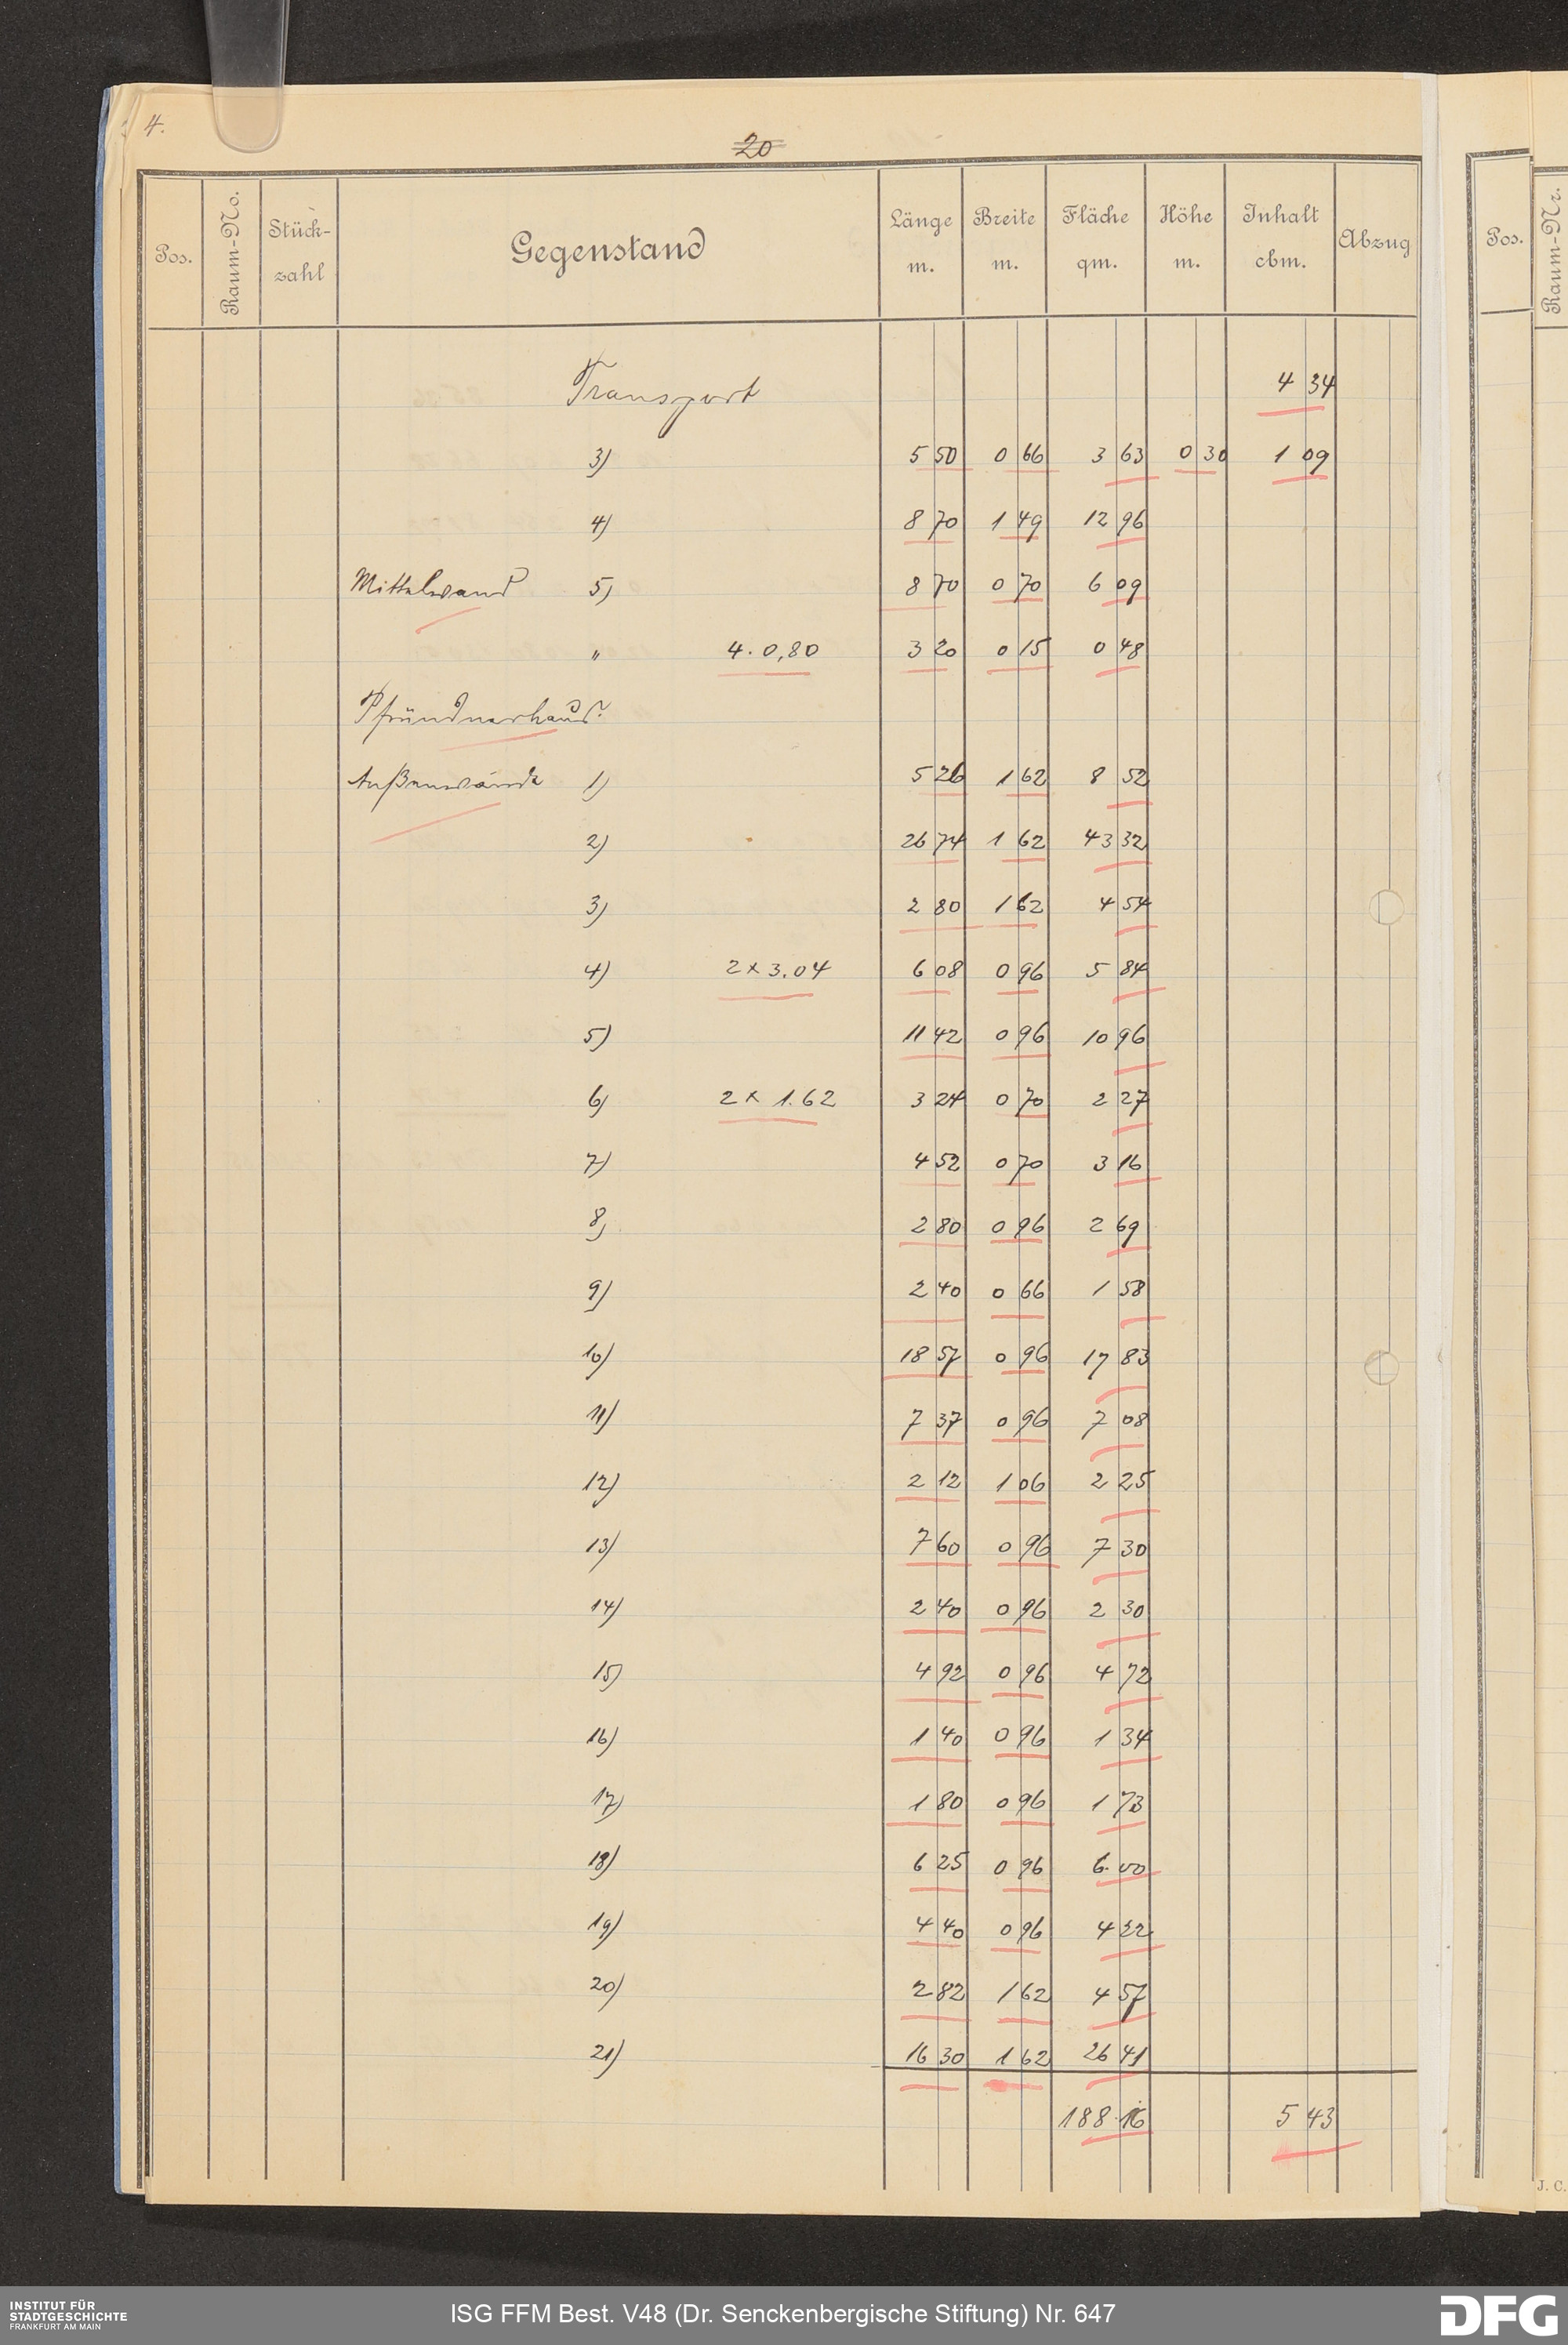 4.
20
Pos. Raum-No. Stück-zahl Gegenstand Länge m. Breite m. Fläche qm. Höhe m. Inhalt cbm. Abzug
Transport 4 34
3) 5 50 0 66 3 63 0 30 1 09
4) 8 70 1 49 12 96
Mittelwand 5) 8 70 0 70 6 09
" 4. 0,80 3 20 0 15 0 48
Pfründnerhaus.
Außenwände 1) 5 26 1 62 8 52
2) 26 74 1 62 43 32
3) 2 80 1 62 4 54
4) 2 x 3.04 6 08 0 96 5 84
5) 11 42 0 96 10 96
6) 2 x 1.62 3 24 0 70 2 27
7) 4 52 0 70 3 16
8) 2 80 0 96 2 69
9) 2 40 0 66 1 58
10) 18 57 0 96 17 83
11) 7 37 0 96 7 08
12) 2 12 1 06 2 25
13) 7 60 0 96 7 30
14) 2 40 0 96 2 30
15) 4 92 0 96 4 72
16) 1 40 0 96 1 34
17) 1 80 0 96 1 73
18) 6 25 0 96 6.00
19) 4 40 0 96 4 22
20) 2 82 1 62 4 57
21) 16 30 1 62 26 41
188 16 5 43
Pos. Raum-Nr.
J. C.
INSTITUT FÜR
STADTGESCHICHTE
FRANKFURT AM MAIN
ISG FFM Best. V48 (Dr. Senckenbergische Stiftung) Nr. 647
DFG